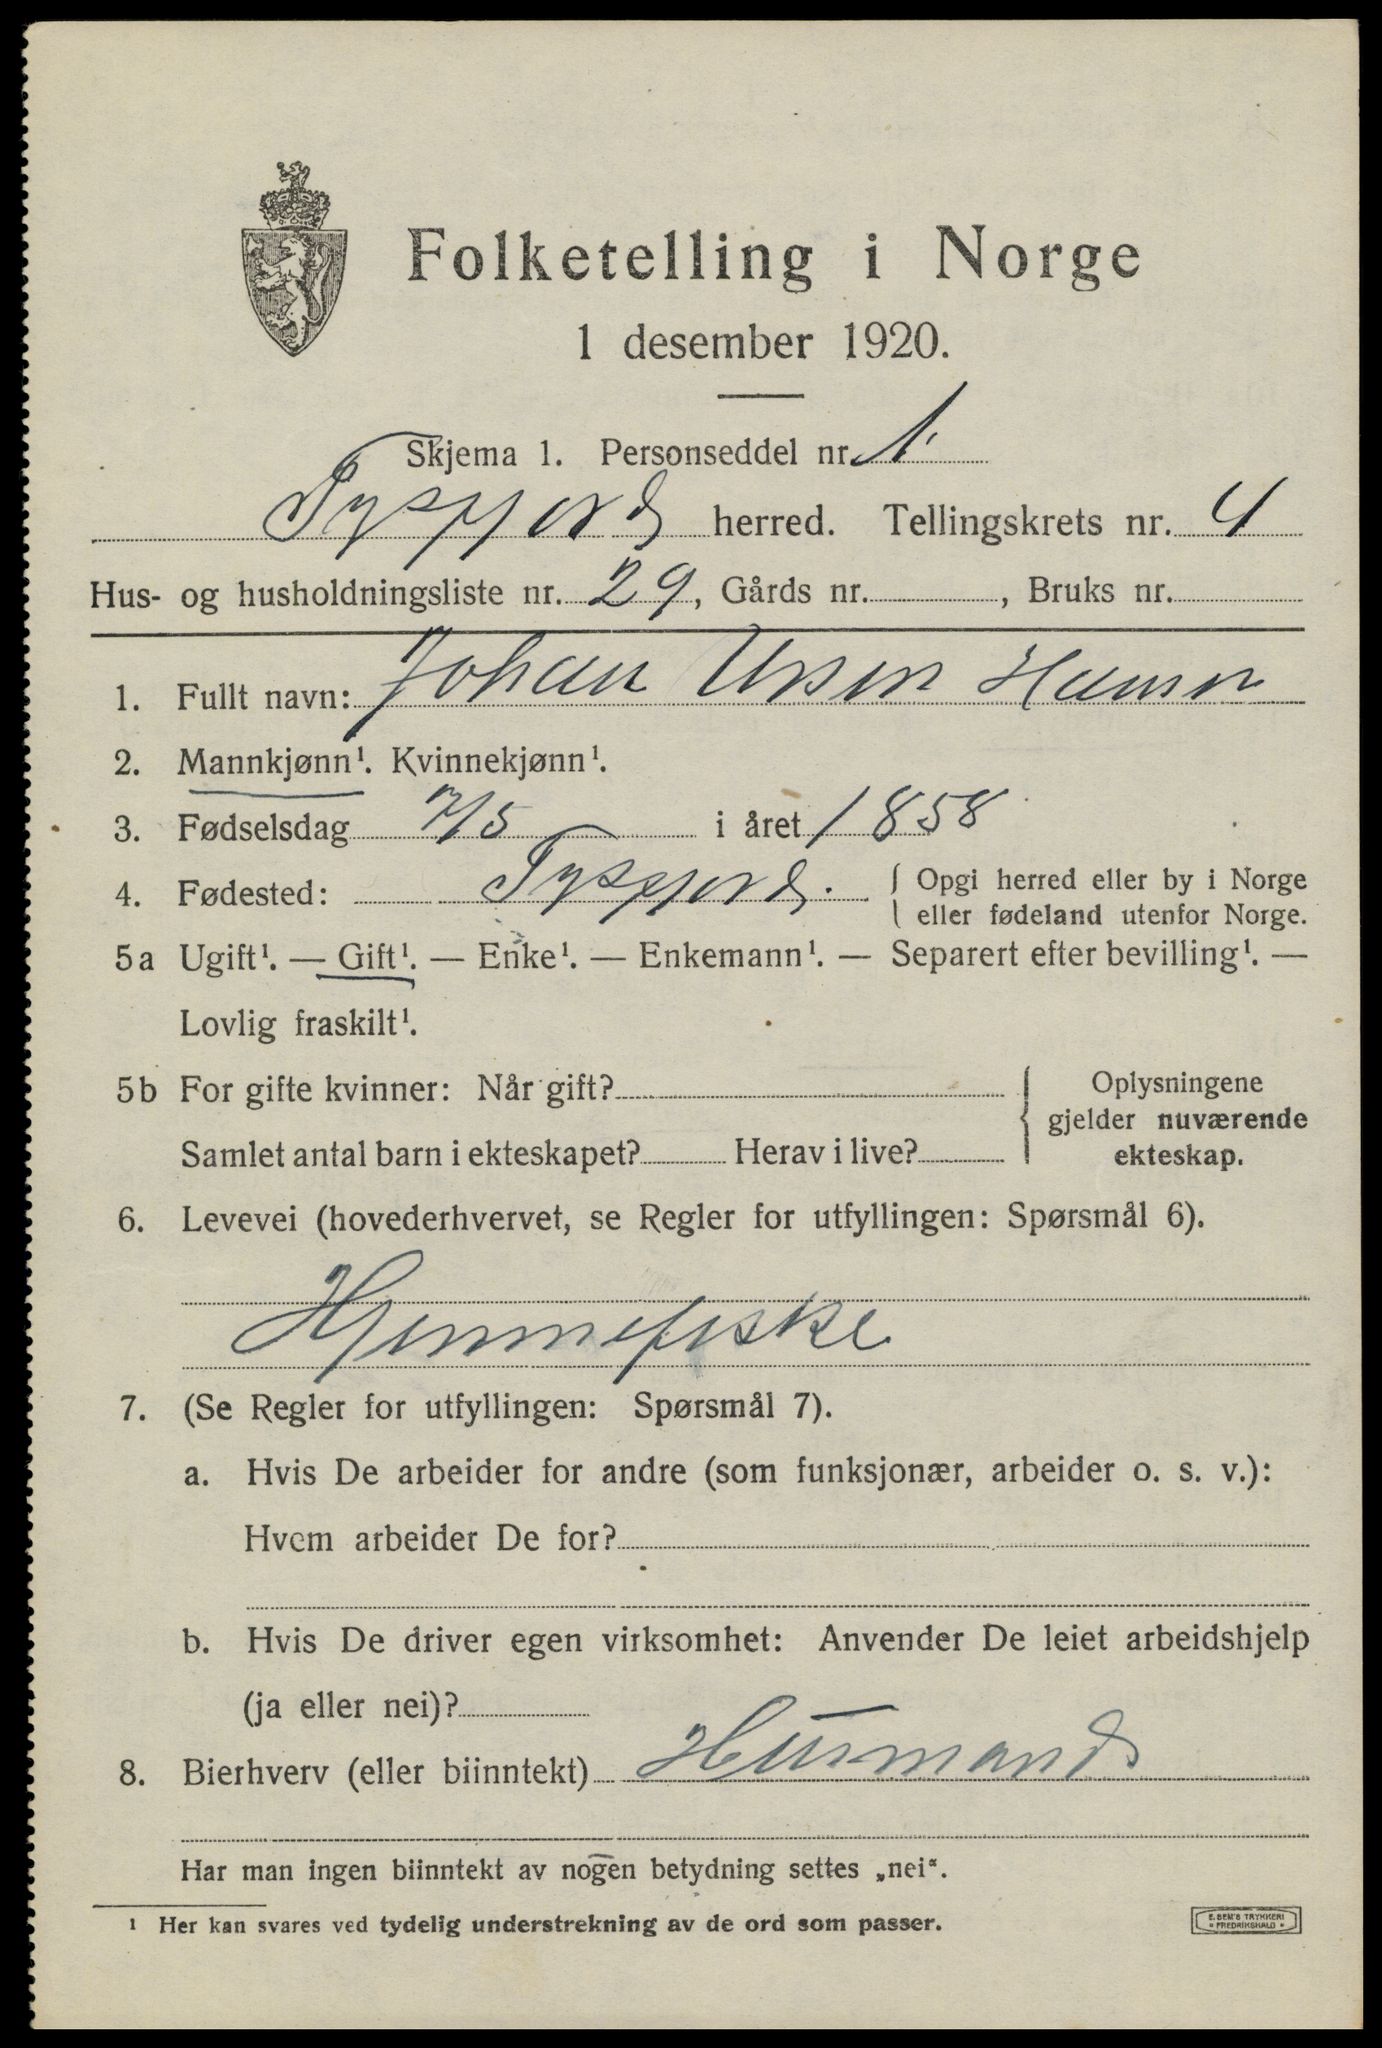 Folketelling i Norge
1 desember 1920.
Skjema 1. Personseddel nr. 1
Tysfjord herred. Tellingskrets nr. 4
Hus- og husholdningsliste nr. 29, Gårds nr. , Bruks nr.
1. Fullt navn: Johan Ursin Hansen
2. Mannkjønn¹. Kvinnekjønn¹.
3. Fødselsdag 7/5 i året 1858
4. Fødested: Tysfjord. { Opgi herred eller by i Norge
eller fødeland utenfor Norge.
5a Ugift¹. — Gift¹. — Enke¹. — Enkemann¹. — Separert efter bevilling¹. —
Lovlig fraskilt¹.
5b For gifte kvinner: Når gift? { Oplysningene
gjelder nuværende
Samlet antal barn i ekteskapet? Herav i live? ekteskap.
6. Levevei (hovederhvervet, se Regler for utfyllingen: Spørsmål 6).
Hjemmefiske
7. (Se Regler for utfyllingen: Spørsmål 7).
a. Hvis De arbeider for andre (som funksjonær, arbeider o. s. v.):
Hvem arbeider De for?
b. Hvis De driver egen virksomhet: Anvender De leiet arbeidshjelp
(ja eller nei)?
8. Bierhverv (eller biinntekt) Husmand
Har man ingen biinntekt av nogen betydning settes „nei“.
¹ Her kan svares ved tydelig understrekning av de ord som passer.
E. SEM'S TRYKKERI
* FREDRIKSHALD *